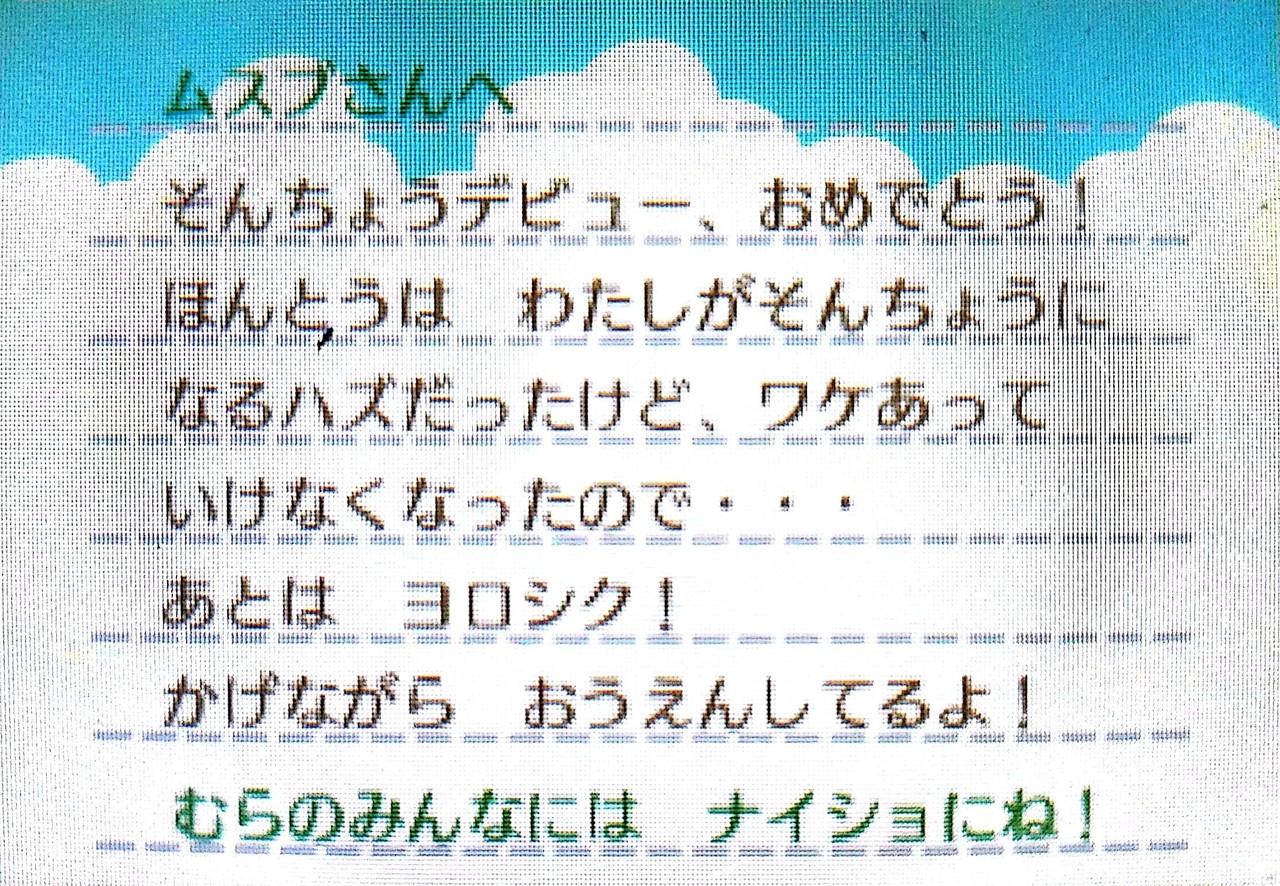 ムスブさんへ
そんちょうデビュー、おめでとう！
ほんとうは　わたしがそんちょうに
なるハズだったけど、ワケあって
いけなくなったので・・・
あとは　ヨロシク！
かげながら　おうえんしてるよ！
むらのみんなには　ナイショにね！